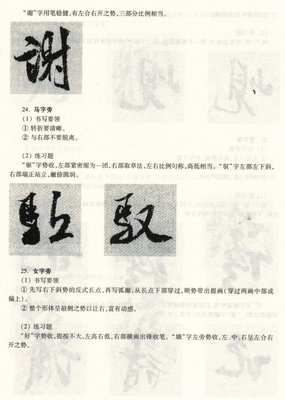 “谢”字用笔稳健,有左合右开之势,三部分比例相当。
謝
24. 马字旁
(1) 书写要领
① 转折要清晰。
② 与右部不要脱离。
(2) 练习题
字势收,左部紧密缩为一团,右部取草法,左右比例匀称,高低相当。“驭”字左部左下斜,
右部端正站立,撇捺圆润。
馭
25. 女字旁
(1) 书写要领
① 先写右下斜势的反式长点,再写弧撇,从长点下部穿过,顺势带出提画(穿过两画中部或
偏上)。
② 整个形体呈欹侧之势以正右,富有动感。
(2) 练习题
“好”字势收,提按不大,左高右低,右部横画出锋收笔。“娥”字左旁势收,左、中、右呈左合右
开之势。